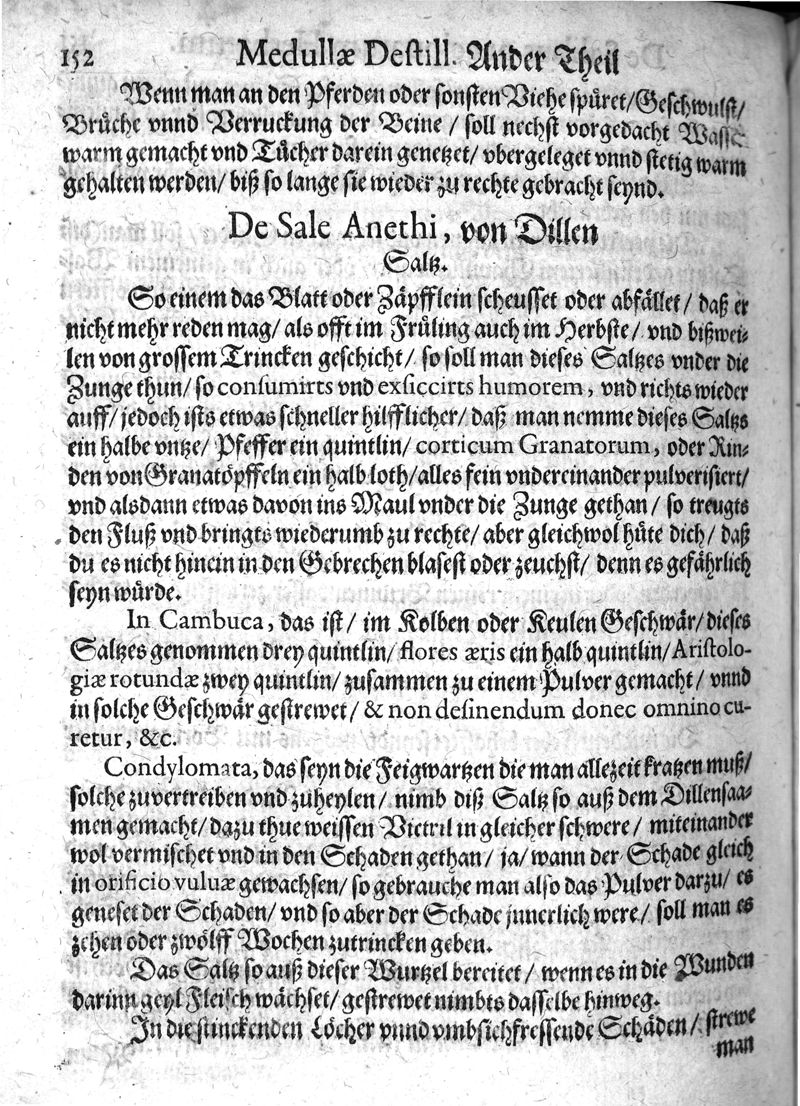 152 Medullæ Destill. Ander Theil
Wenn man an den Pferden oder sonsten Viehe spüret/ Geschwulst/
Brüche vnnd Verruckung der Beine / soll nechst vorgedacht Wasser
warm gemacht vnd Tücher darein genetzet/ vbergeleget vnnd stetig warm
gehalten werden/ biß so lange sie wieder zu rechte gebracht seynd.
De Sale Anethi, von Dillen
Saltz.
So einem das Blatt oder Zäpfflein scheusset oder abfället/ daß er
nicht mehr reden mag/ als offt im Früling auch im Herbste/ vnd bißwei-
len von grossem Trincken geschicht/ so soll man dieses Saltzes vnder die
Zunge thun/ so consumirts vnd exsiccirts humorem, vnd richts wieder
auff/ jedoch ists etwas schneller hilfflicher/ daß man nemme dieses Saltzs
ein halbe vntze/ Pfeffer ein quintlin/ corticum Granatorum, oder Rin-
den von Granatöpffeln ein halb loth/ alles fein vndereinander pulverisiert/
vnd alsdann etwas davon ins Maul vnder die Zunge gethan/ so treugts
den Fluß vnd bringts wiederumb zu rechte/ aber gleichwol hüte dich/ daß
du es nicht hinein in den Gebrechen blasest oder zeuchst/ denn es gefährlich
seyn würde.
In Cambuca, das ist/ im Kolben oder Keulen Geschwär/ dieses
Saltzes genommen drey quintlin/ flores æris ein halb quintlin/ Aristolo-
giæ rotundæ zwey quintlin/ zusammen zu einem Pulver gemacht/ vnnd
in solche Geschwär gestrewet/ & non desinendum donec omnino cu-
retur, &c.
Condylomata, das seyn die Feigwartzen die man allezeit kratzen muß/
solche zuvertreiben vnd zuheylen/ nimb diß Saltz so auß dem Dillensaa-
men gemacht/ dazu thue weissen Victril in gleicher schwere/ miteinander
wol vermischet vnd in den Schaden gethan/ ja/ wann der Schade gleich
in orificio vuluæ gewachsen/ so gebrauche man also das Pulver darzu/ es
geneset der Schaden/ vnd so aber der Schade jnnerlich were/ soll man es
zehen oder zwölff Wochen zutrincken geben.
Das Saltz so auß dieser Wurtzel bereitet/ wenn es in die Wunden
darinn geyl Fleisch wächset/ gestrewet nimbts dasselbe hinweg.
In die stinckenden Löcher vnnd vmbsichfressende Schäden/ strewe
man